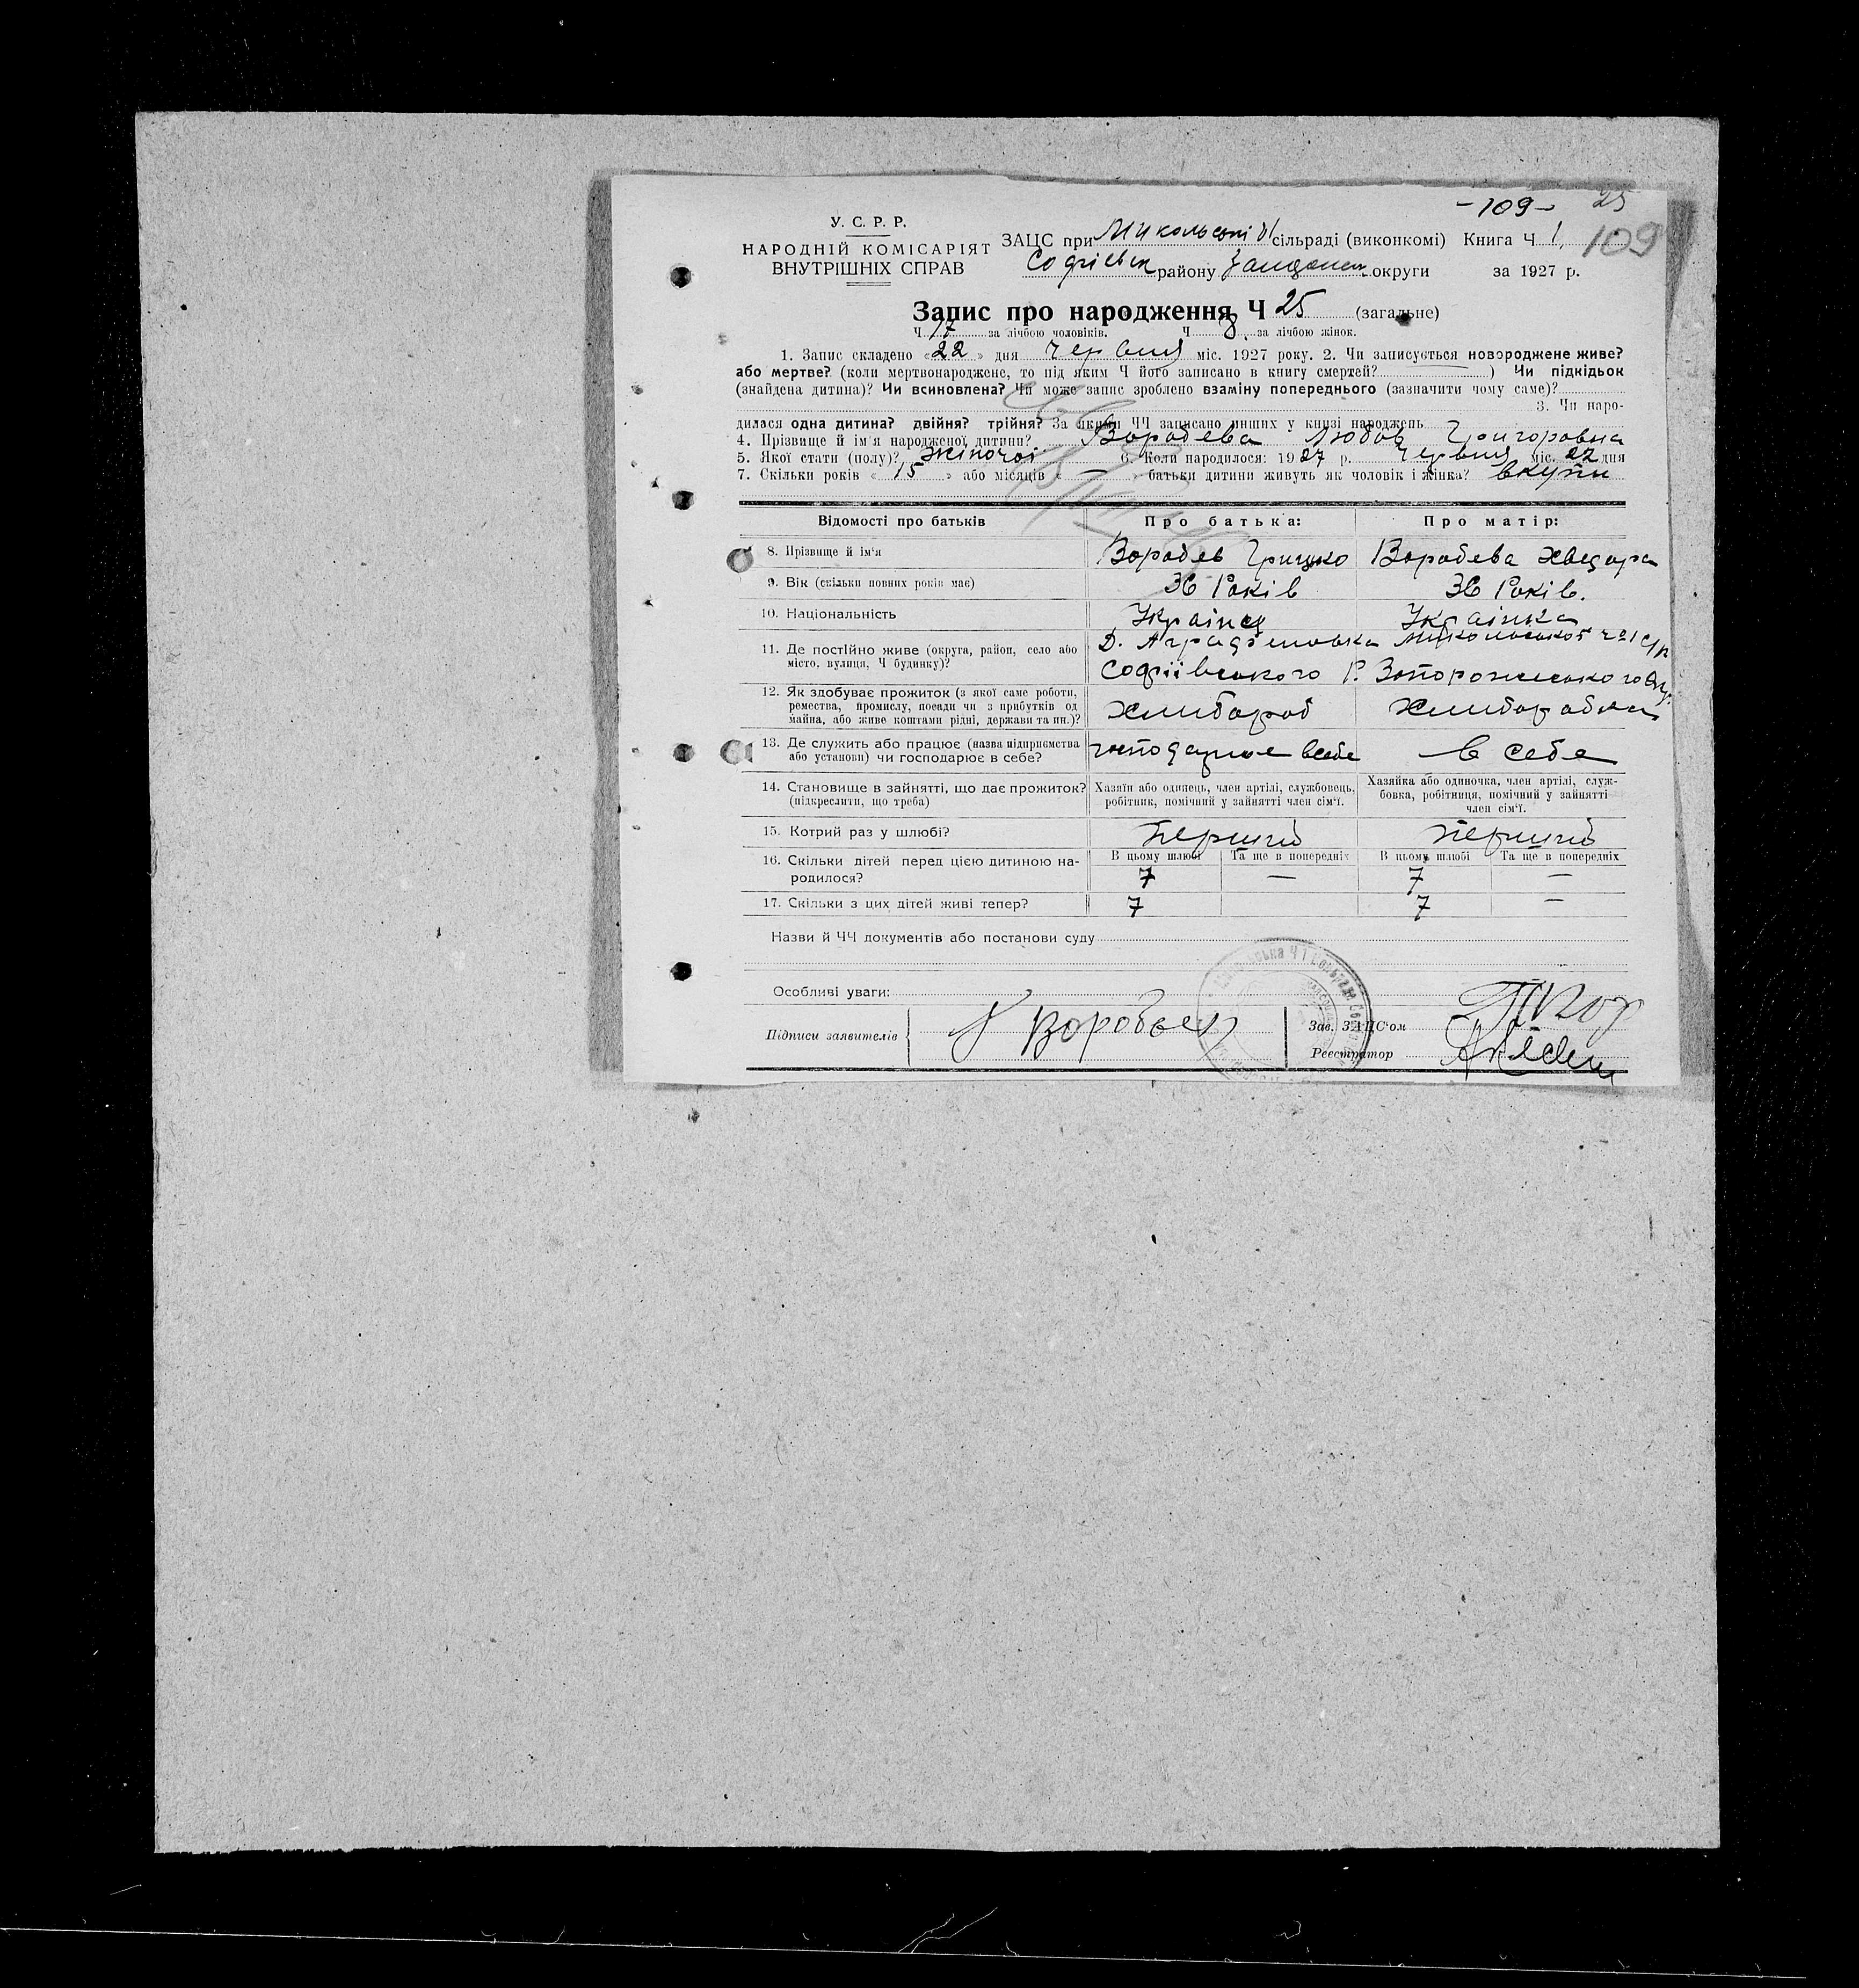 -109- 25
109
У. С. Р. Р.
НАРОДНІЙ КОМІСАРІЯТ
ВНУТРІШНІХ СПРАВ
ЗАЦС при Микольській сільраді (виконкомі) Книга Ч 1.
Софіевск району округи за 1927 р.
Запис про народження Ч 25 (загальне)
Ч 17 за лічбою чоловіків. Ч 8 за лічбою жінок.
1. Запис складено «22» дня червня міс. 1927 року. 2. Чи записується новороджене живе?
або мертве? (коли мертвонароджене, то під яким Ч його записано в книгу смертей? ) Чи підкідьок
(знайдена дитина)? Чи всиновлена? Чи може запис зроблено взаміну попереднього (зазначити чому саме)?
3. Чи наро-
дилася одна дитина? двійня? трійня? За якими ЧЧ записано инших у книзі народжень
4. Прізвище й ім'я народженої дитини? Воробева Любов Григоровна
5. Якої стати (полу)? жіночої 6. Коли народилося: 1927 р. червня міс. 22 дня
7. Скільки років «15» або місяців « — » батьки дитини живуть як чоловік і жінка? вкупи
Відомості про батьків Про батька: Про матір:
8. Прізвище й ім'я Воробев Грицко Воробева Хведора
9. Вік (скільки повних років має) 36 Років 36 Років.
10. Національність Українец Українка
11. Де постійно живе (округа, район, село або
місто, вулиця, Ч будинку)?
Д. Микольської ч 1 с/р
Софіївського Р. Запорожського Окр.
12. Як здобуває прожиток (з якої саме роботи,
ремества, промислу, посади чи з прибутків од
майна, або живе коштами рідні, держави та ин.)?
хлибороб хлиборобка
13. Де служить або працює (назва підприємства
або установи) чи господарює в себе?
господарює в себе в себе
14. Становище в зайнятті, що дає прожиток?
(підкреслити, що треба)
Хазяїн або одинець, член артілі, службовець,
робітник, помічний у зайнятті член сім'ї.
Хазяйка або одиночка, член артілі, служ-
бовка, робітниця, помічний у зайнятті
член сім'ї.
15. Котрий раз у шлюбі? перший перший
16. Скільки дітей перед цією дитиною на-
родилося?
В цьому шлюбі Та ще в попередніх В цьому шлюбі Та ще в попередніх
7 — 7 —
17. Скільки з цих дітей живі тепер? 7 7 —
Назви й ЧЧ документів або постанови суду
Особливі уваги:
Підписи заявителів Воробьев
Зав. ЗАЦС'ом
Реєстратор